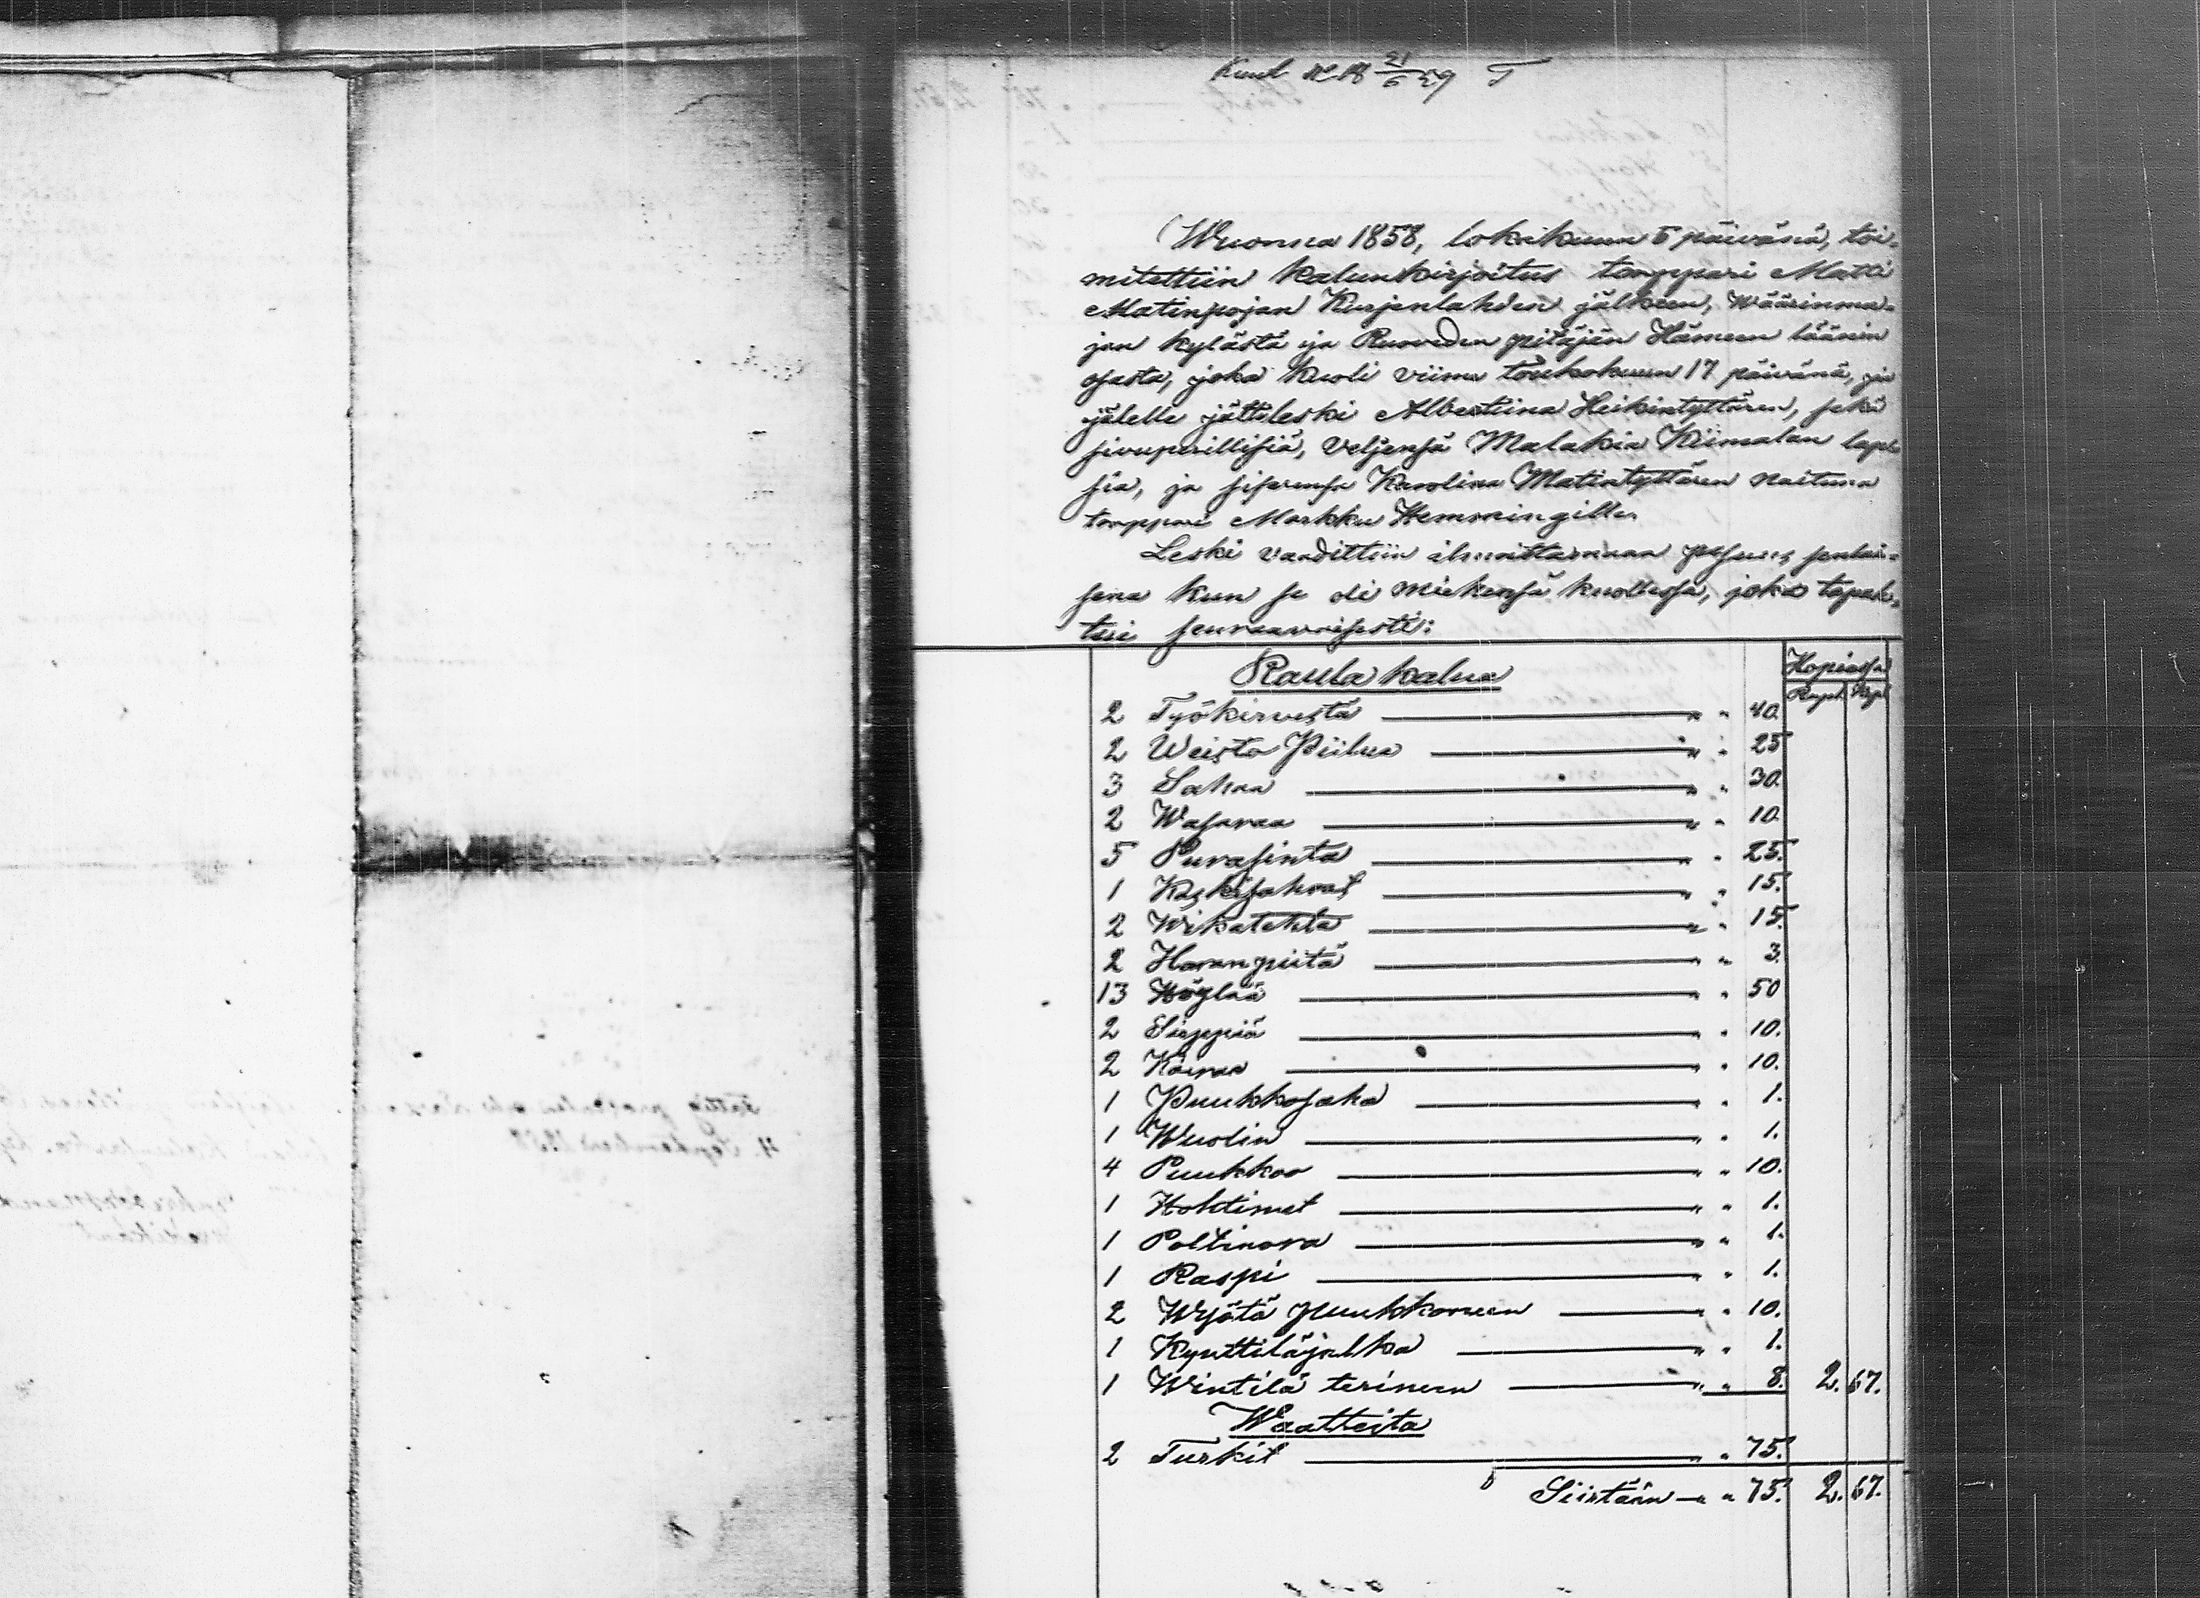 Wuonna 1858, lokakuun 5 päivänä, toi-
mitettiin kalunkirjoitus torppari Matti
Matinpojan Kurjenlahden jälkeen, Wäärinma-
jan kylästä ja Ruoveden pitäjän Hämeen läänin
osasta, joka kuoli viime toukokuun 17 päivänä, ja
jälelle jätti leski Albertiina Heikintyttären, sekä
sivuperillisiä, veljensä Malakia Kiimalan lap-
sia, ja sisarensa Karolina Matintyttären naituna
torppari Markku Hemmingille.
Leski vaadittiin ilmoittamaan pesän, senlai-
sena kun se oli miehensä kuollessa, joka tapah-
tui seuraavaisesti:
Rauta kalua Hopiassa
Rupl. Kop.
2 Työkirvestä " " 40.
2 Weisto Piilua " " 25
3 Sahaa " " 30.
2 Wasaraa " " 10.
5 Purasinta " " 25.
1 Keskisahrat " " 15.
2 Wikatehta " " 15.
2 Haranpiitä " " 3.
13 Höylää " " 50
2 Sirppiä " " 10.
2 Kairaa " " 10.
1 Puukkosaha " " 1.
1 Wuolin " " 1.
4 Puukkoo " " 10.
1 Hohtimet " " 1.
1 Polttinora " " 1.
1 Raspi " " 1.
2 Wyötä puukkoneen " " 10.
1 Kynttiläjalka " " 1.
1 Wintilä terineen " " 8. 2. 67.
Waatteita
2 Turkit " " 75.
Siirtään " " 75. 2. 67.